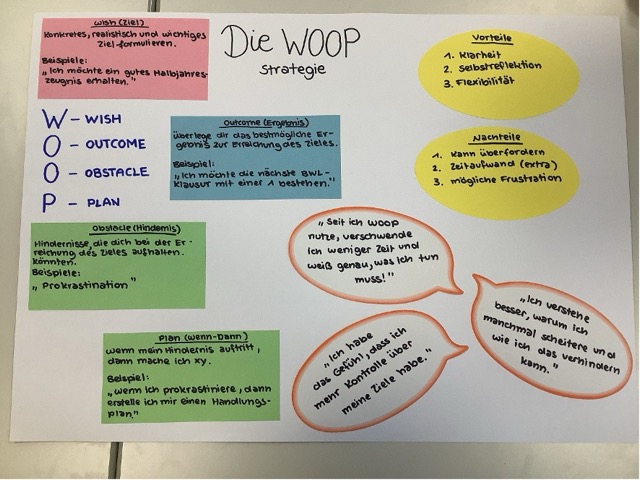 Die WOOP
Strategie
Wish (Ziel)
Konkretes, realistisch und wichtiges
Ziel formulieren.
Beispiele:
„Ich möchte ein gutes Halbjahres-
zeugnis erhalten."
W - WISH
O - OUTCOME
O - OBSTACLE
P - PLAN
Outcome (Ergebnis)
Überlege dir das bestmögliche Er-
gebnis zur Erreichung des Zieles.
Beispiel:
„Ich möchte die nächste BWL-
Klausur mit einer 1 bestehen."
Obstacle (Hindernis)
Hindernisse, die dich bei der Er-
reichung des Zieles aufhalten
könnten.
Beispiele:
„Prokrastination"
Plan (Wenn-Dann)
Wenn mein Hindernis auftritt,
dann mache ich xy.
Beispiel:
„Wenn ich prokrastiniere, dann
erstelle ich mir einen Handlungs-
plan."
Vorteile
1. Klarheit
2. Selbstreflektion
3. Flexibilität
Nachteile
1. Kann überfordern
2. Zeitaufwand (extra)
3. mögliche Frustration
„Seit ich WOOP
nutze, verschwende
ich weniger Zeit und
weiß genau, was ich tun
muss!"
„Ich verstehe
besser, warum ich
manchmal scheitere und
wie ich das verhindern
kann."
„Ich habe
das Gefühl, dass ich
mehr Kontrolle über
meine Ziele habe."